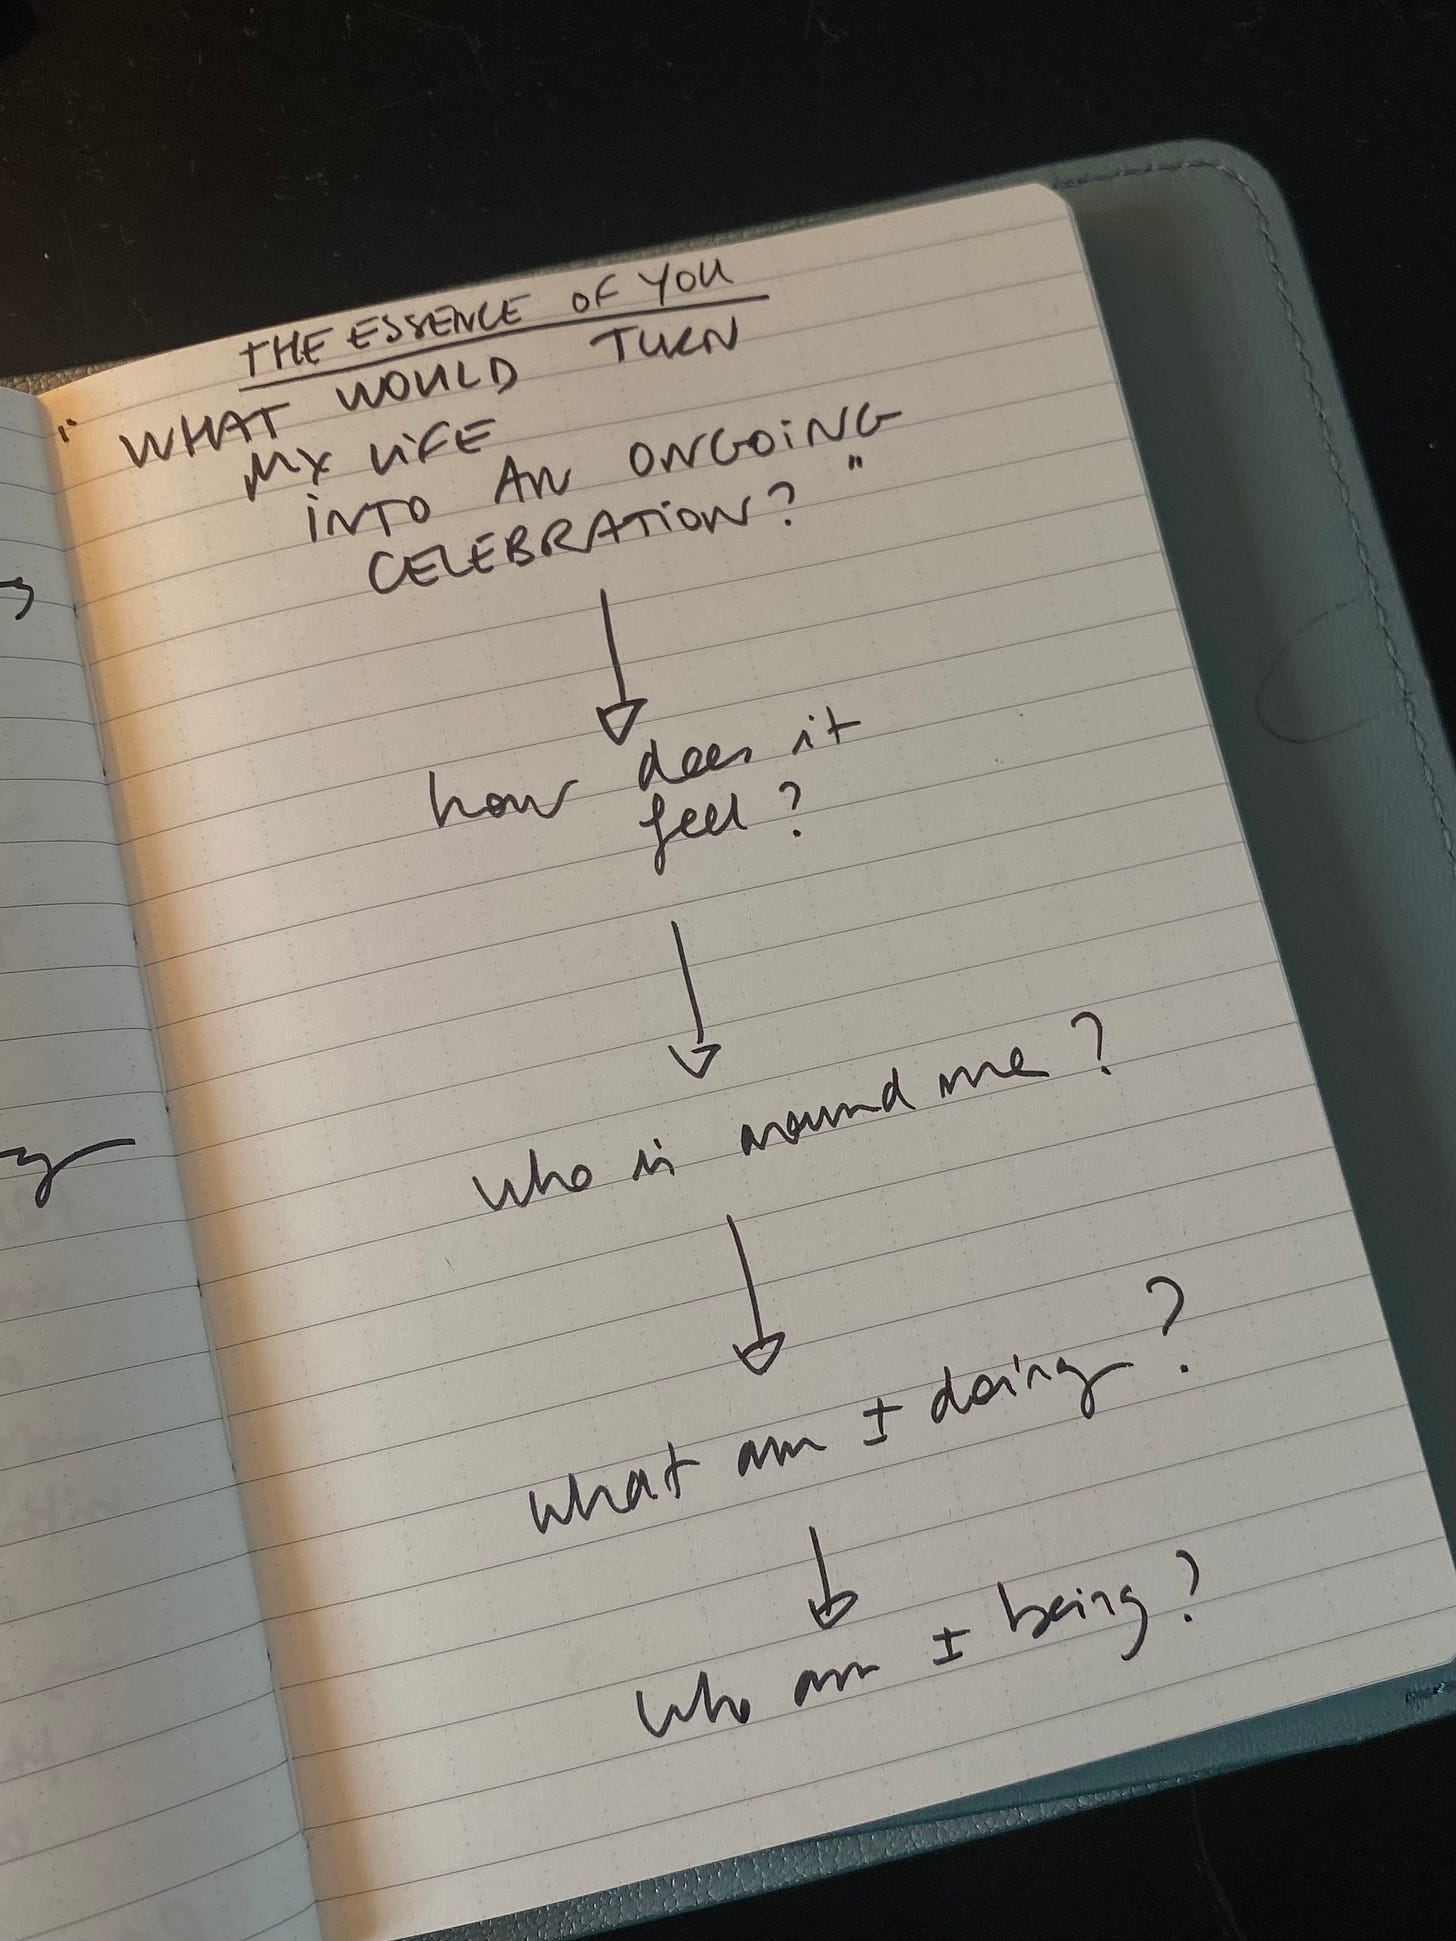 THE ESSENCE OF YOU
"WHAT WOULD TURN
MY LIFE
INTO AN ONGOING
CELEBRATION?"
how does it
feel?
who is around me?
what am I doing?
who am I being?